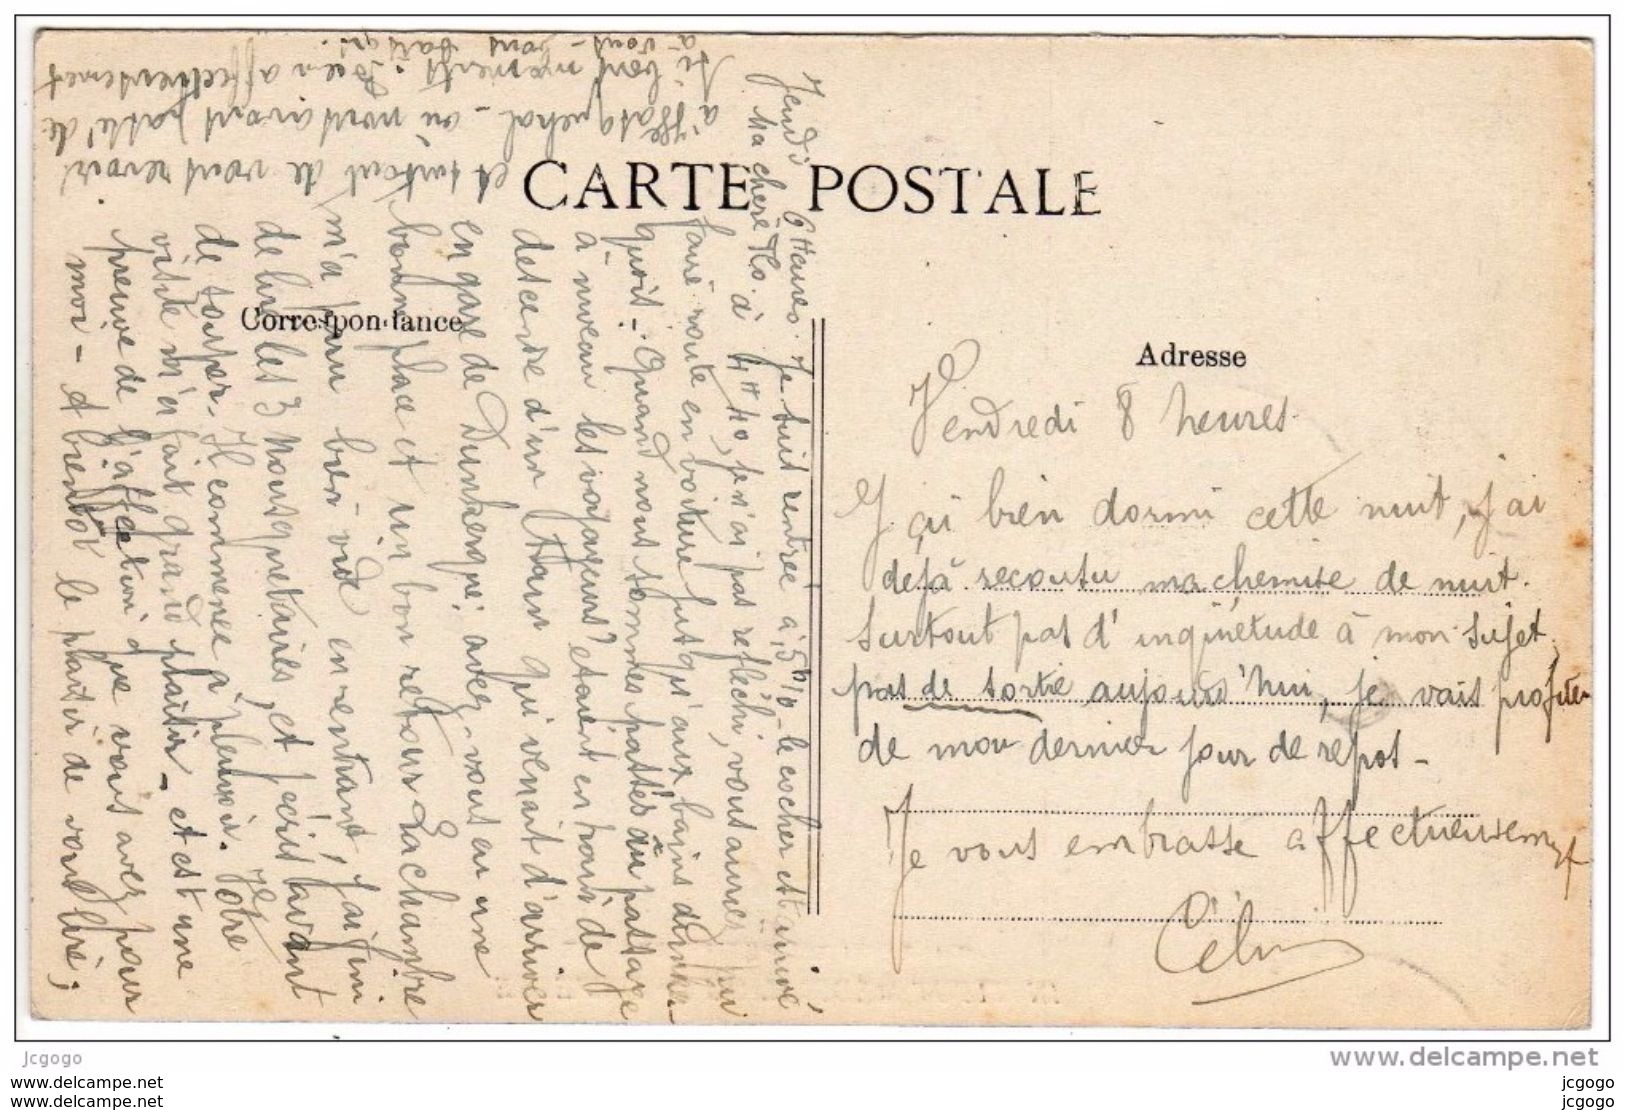 CARTE POSTALE
Correspondance
Adresse
Jeudi 6 Heures. Je suis rentrée à 5h10 le cocher est arrivé
Ma chère à 4H40, je n'ai pas réfléchi, vous auriez pu
faire route en voiture jusqu'aux bains dunker-
quois. Quand nous sommes passés au passage
à niveau les voyageurs étaient en train de
descendre d'un tram qui venait d'arriver
en gare de Dunkerque, avez-vous eu une
bonne place et un bon retour. La chambre
m'a paru bien vide en rentrant, j'ai fini
de lire les 3 Mousquetaires, et j'écris avant
de souper. Il commence à pleuvoir. Votre
visite m'a fait grand plaisir - et est une
preuve de l'affection que vous avez pour
moi - A bientôt le plaisir de vous lire,
et surtout de vous revoir.
à - où nous avons passé de
si bons moments. Bien affectueusement
à vous
Vendredi 8 heures.
J'ai bien dormi cette nuit, j'ai
déjà recousu ma chemise de nuit.
Surtout pas d'inquiétude à mon sujet
pas de sortie aujourd'hui, je vais profiter
de mon dernier jour de repos -
Je vous embrasse affectueusement
Jcgogo
www.delcampe.com
www.delcampe.com
www.delcampe.net
jcgogo
jcgogo